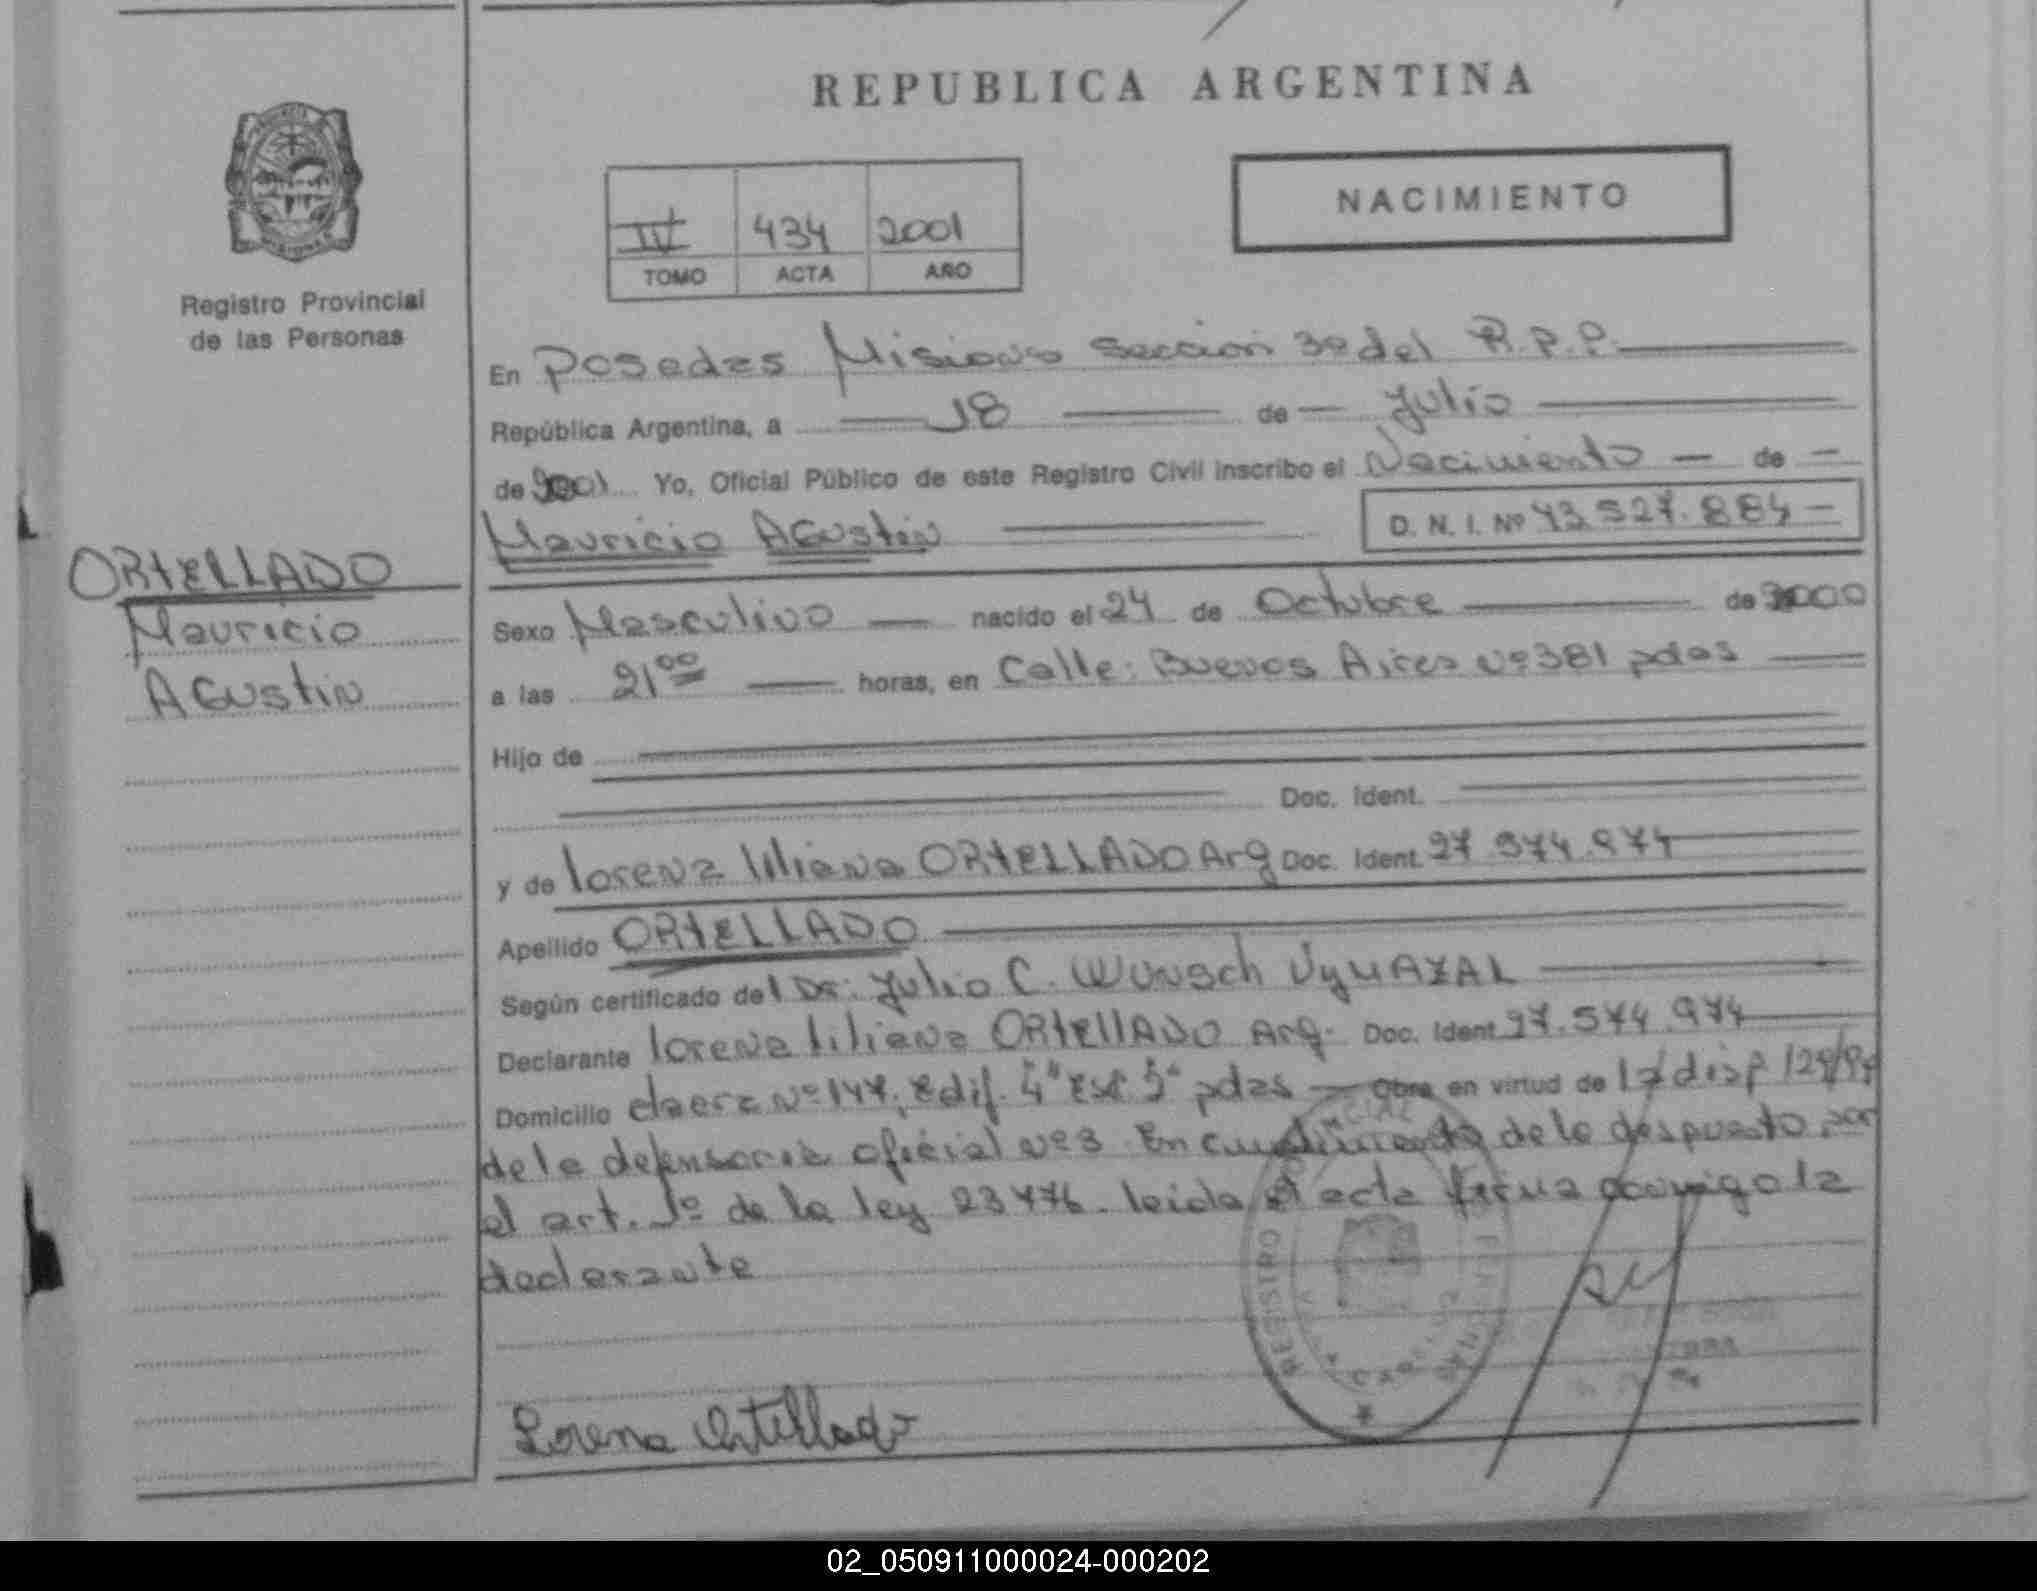 REPUBLICA ARGENTINA
NACIMIENTO
IV 434 2001
TOMO ACTA AÑO
Registro Provincial
de las Personas
En Posadas Misiones Sección 3º del R.P.P.
República Argentina, a 18 de Julio
de 2001 Yo, Oficial Público de este Registro Civil inscribo el Nacimiento de
Mauricio Agustin D. N. I. Nº 43.527.884
ORTELLADO
Mauricio
Agustin
Sexo Masculino nacido el 24 de Octubre de 2000
a las 21 00 horas, en Calle: Buenos Aires Nº 381 pdas
Hijo de
Doc. Ident.
y de Lorena Liliana ORTELLADO Arg Doc. Ident. 27.574.974
Apellido ORTELLADO
Según certificado del Dr: Julio C. Wunsch VyMAZAL
Declarante Lorena Liliana ORTELLADO Arg. Doc. Ident 27.574.974
Domicilio Nº 147, Edif. 4" Esc. pdas Obra en virtud de la disp
de la defensoria oficial Nº 3. En cumplimiento de lo despuesto por
el art. 1º de la ley 23776. Leida el acta firma conmigo la
declarante
REGISTRO
Lorena Ortellado
02_050911000024-000202